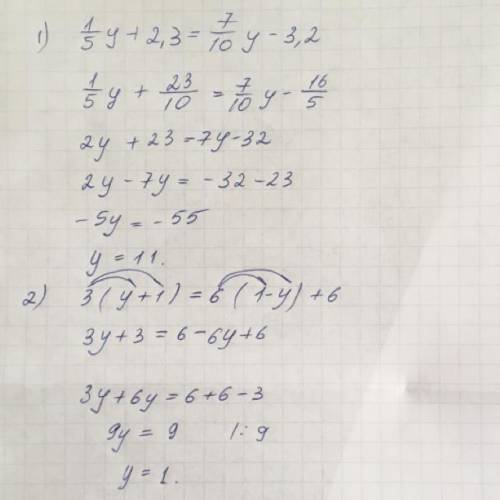 1) 1/5 y + 2,3 = 7/10 y - 3,2
1/5 y + 23/10 = 7/10 y - 16/5
2y + 23 = 7y - 32
2y - 7y = - 32 - 23
- 5y = - 55
y = 11.
2) 3 ( y + 1 ) = 6 ( 1 - y ) + 6
3y + 3 = 6 - 6y + 6
3y + 6y = 6 + 6 - 3
9y = 9 | : 9
y = 1.